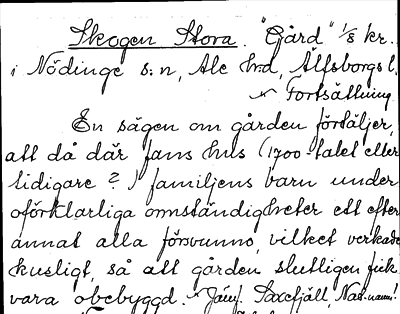 Skogen Stora. "Gård" 1/8 kr.
i Nödinge s:n, Ale hrd, Älfsborgs l.
Fortsättning
En sägen om gården förtäljer,
att då där fans hus (1700-talet eller
tidigare?) familjens barn under
oförklarliga omständigheter ett efter
annat alla försvunno, vilket verkade
kusligt, så att gården slutligen fick
vara obebyggd. Jämf. Saxefjäll, Nat.namn!